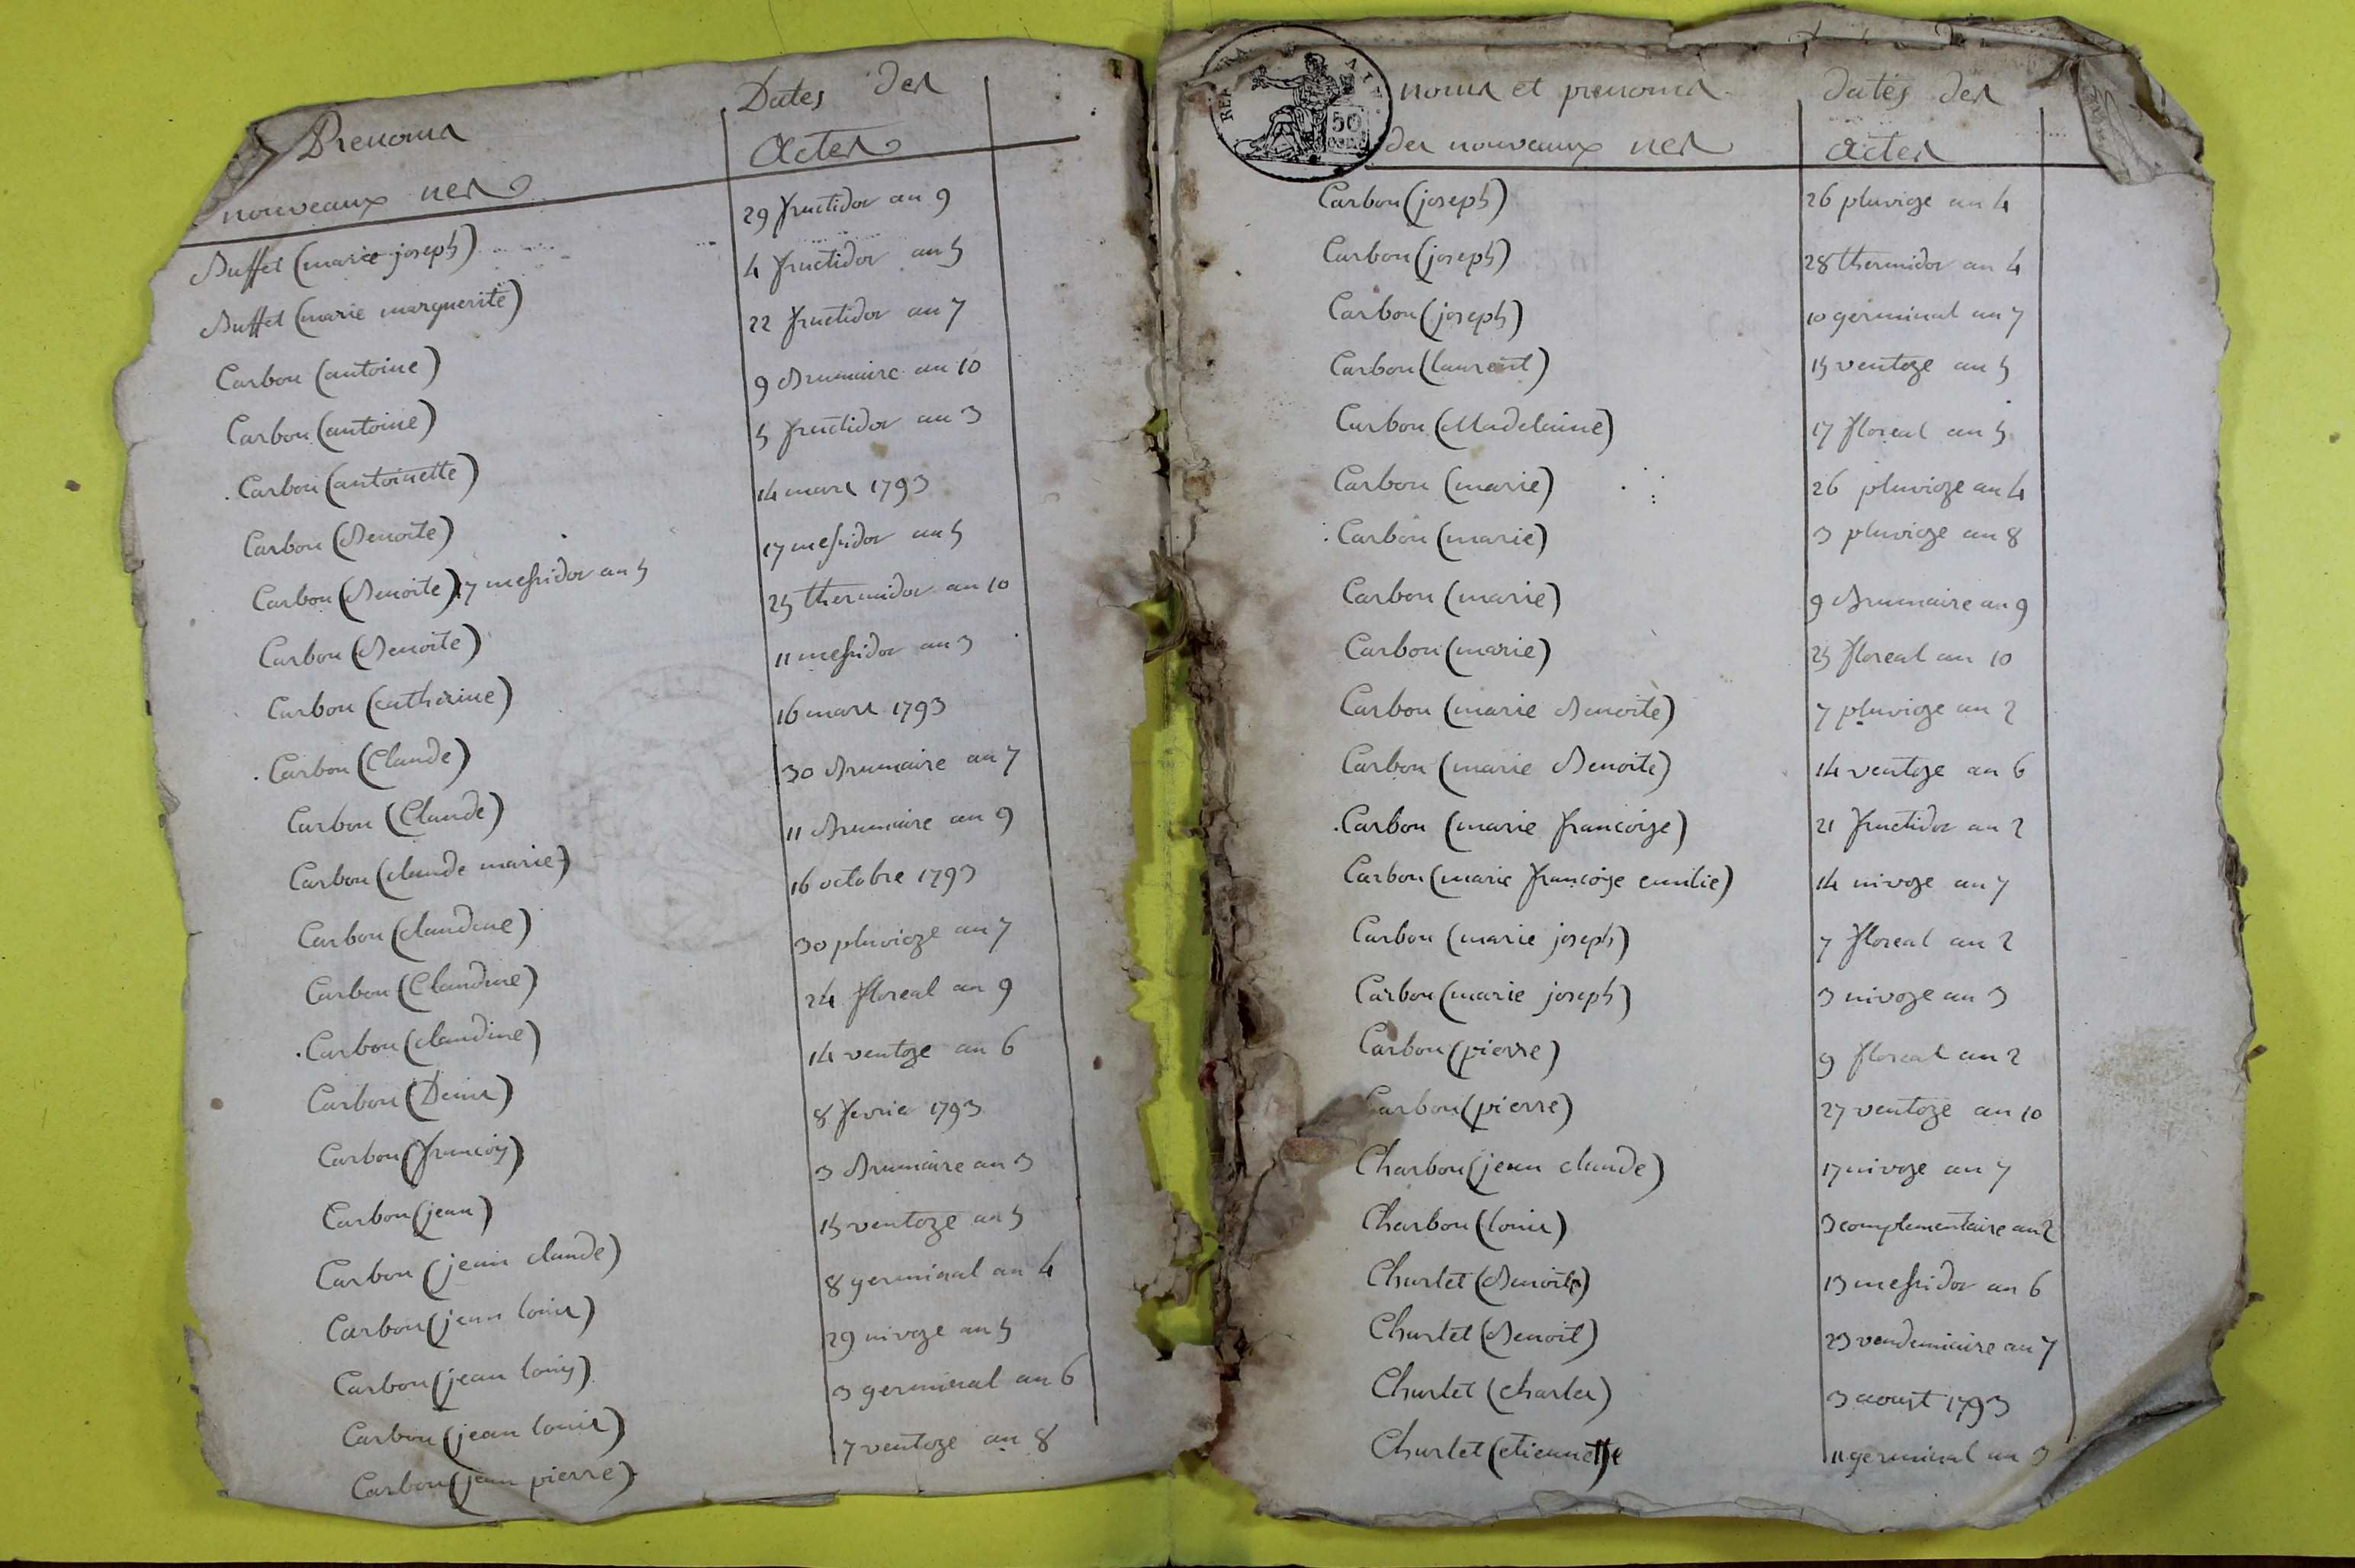 Prenoms Dates des
nouveaux nes Actes
Buffet (marie joseph) 29 fructidor an 9
Buffet (marie marguerite) 4 fructidor an 5
Carbon (antoine) 22 fructidor an 7
Carbon (antoine) 9 Brumaire an 10
Carbon (antoinette) 5 fructidor an 3
Carbon (Benoite) 14 mars 1793
Carbon (Benoite) 17 messidor an 5 17 messidor an 5
Carbon (Benoite) 25 thermidor an 10
Carbon (catherine) 11 messidor an 3
Carbon (Claude) 16 mars 1793
Carbon (Claude) 30 Brumaire an 7
Carbon (claude marie) 11 Brumaire an 9
Carbon (claudine) 16 octobre 1793
Carbon (Claudine) 30 pluvioze an 7
Carbon (claudine) 24 floreal an 9
Carbon (Denis) 14 ventoze an 6
Carbon (francois) 8 fevrie 1793
Carbon (jean) 3 Brumaire an 3
Carbon (jean claude) 15 ventoze an 5
Carbon (jean louis) 8 germinal an 4
Carbon (jean louis) 29 nivoze an 5
Carbon (jean louis) 3 germinal an 6
Carbon (jean pierre) 7 ventoze an 8
50
noms et prenoms dates des
des nouveaux nes actes
Carbon (joseph) 26 pluvioze an 4
Carbon (joseph) 28 thermidor an 4
Carbon (joseph) 10 germinal an 7
Carbon (laurent) 15 ventoze an 5
Carbon (Madelaine) 17 floreal an 5
Carbon (marie) 26 pluvioze an 4
Carbon (marie) 3 pluvioze an 8
Carbon (marie) 9 Brumaire an 9
Carbon (marie) 25 floreal an 10
Carbon (marie Benoite) 7 pluvioze an 2
Carbon (marie Benoite) 14 ventoze an 6
Carbon (marie francoize) 21 fructidor an 2
Carbon (marie francoize emilie) 14 nivoze an 7
Carbon (marie joseph) 7 floreal an 2
Carbon (marie joseph) 3 nivoze an 3
Carbon (pierre) 9 floreal an 2
Carbon (pierre) 27 ventoze an 10
Charbon (jean claude) 17 nivoze an 7
Charbon (louis) 3 complementaire an 2
Charlet (Benoite) 13 messidor an 6
Charlet (Benoit) 23 vendemiaire an 7
Charlet (charles) 3 aoust 1793
Charlet (etiennette 11 germinal an 3